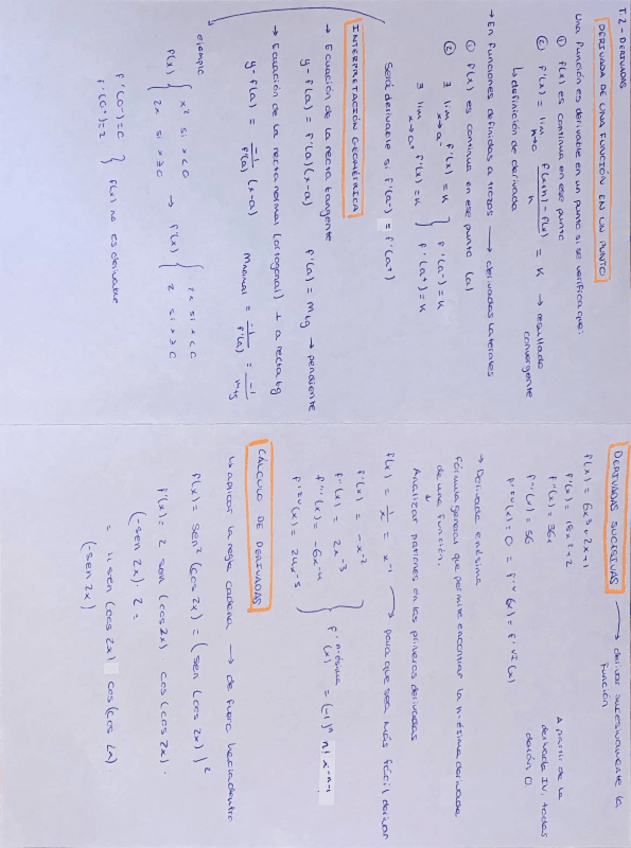 T.2 - DERIVADAS
DERIVADA DE UNA FUNCIÓN EN UN PUNTO
Una función es derivable en un punto si se verifica que:
① f(x) es continua en ese punto
② f'(x) = lim h→0 f(x+h) - f(x) / h = K → resultado convergente
↳ definición de derivada
→ En funciones definidas a trozos → derivadas laterales
① f(x) es continua en ese punto (a)
② ∃ lim x→a⁻ f'(x) = K } f'(a⁻) = K
∃ lim x→a⁺ f'(x) = K } f'(a⁺) = K
Será derivable si f'(a⁻) = f'(a⁺)
INTERPRETACIÓN GEOMÉTRICA
→ Ecuación de la recta tangente
y - f(a) = f'(a)(x-a) f'(a) = m tg → pendiente
→ Ecuación de la recta normal (ortogonal) ⊥ a recta tg
y - f(a) = -1/f'(a) (x-a) m normal = -1/f'(a) = -1/m tg
ejemplo
f(x) { x² si x<0 → f'(x) { 2x si x<0
2x si x≥0 2 si x≥0
f'(0⁻)=0 } f(x) no es derivable
f'(0⁺)=2
DERIVADAS SUCESIVAS → derivar sucesivamente la función
f(x) = 6x³ + 2x + 1
f'(x) = 18x² + 2
f''(x) = 36x
f'''(x) = 36
f'^IV(x) = 0 = f'^V(x) = f'^VI(x)
A partir de la derivada IV, todas darán 0
→ Derivada enésima
Fórmula general que permite encontrar la n-ésima derivada
de una función.
↓
Analizar patrones en las primeras derivadas
f(x) = 1/x = x⁻¹ → para que sea más fácil derivar
f'(x) = -x⁻²
f''(x) = 2x⁻³
f'''(x) = -6x⁻⁴
f'^IV(x) = 24x⁻⁵
} f'^n-ésima (x) = (-1)ⁿ n! x⁻ⁿ⁻¹
CÁLCULO DE DERIVADAS
↳ aplicar la regla cadena → de fuera hacia dentro
f(x) = sen² (cos 2x) = (sen (cos 2x))²
f'(x) = 2 sen (cos 2x) · cos (cos 2x) ·
(-sen 2x) · 2 =
= 4 sen (cos 2x) cos (cos 2x) ·
(-sen 2x)